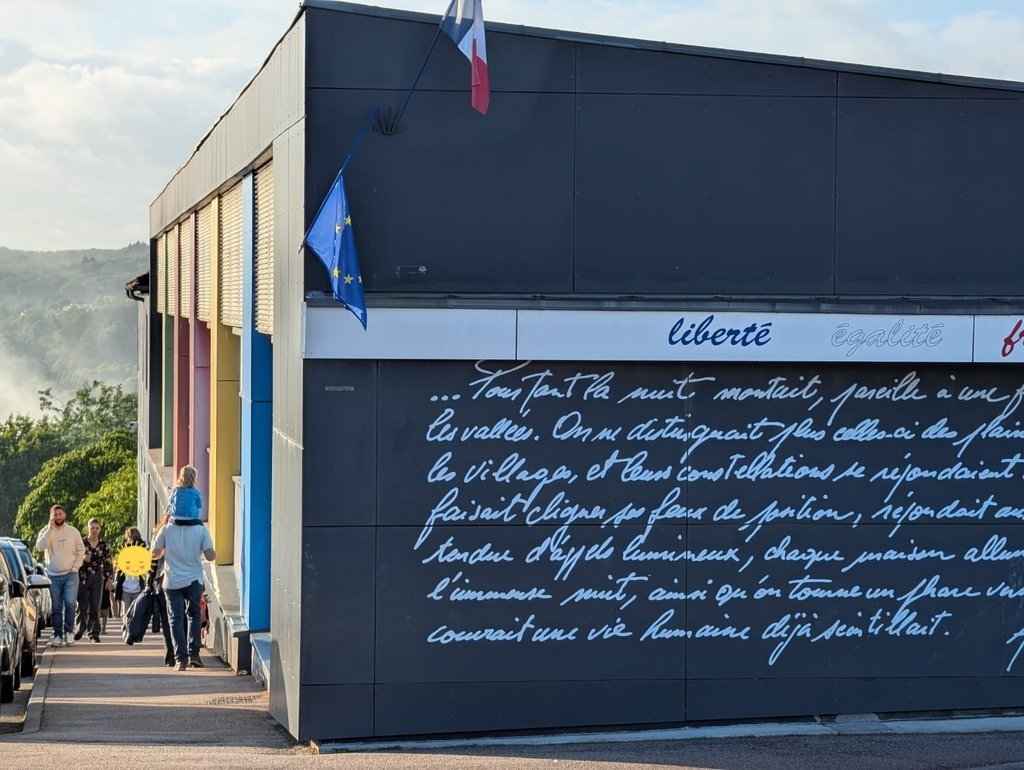 liberté égalité fr
... Pourtant la nuit montait, pareille à une f
les vallées. On ne distinguait plus celles-ci des plain
les villages, et leurs constellations se répondaient
faisait cligner ses feux de position, répondait au
tendue d'appels lumineux, chaque maison allum
l'immense nuit, ainsi qu'on tourne un phare ver
courait une vie humaine déjà scintillait.